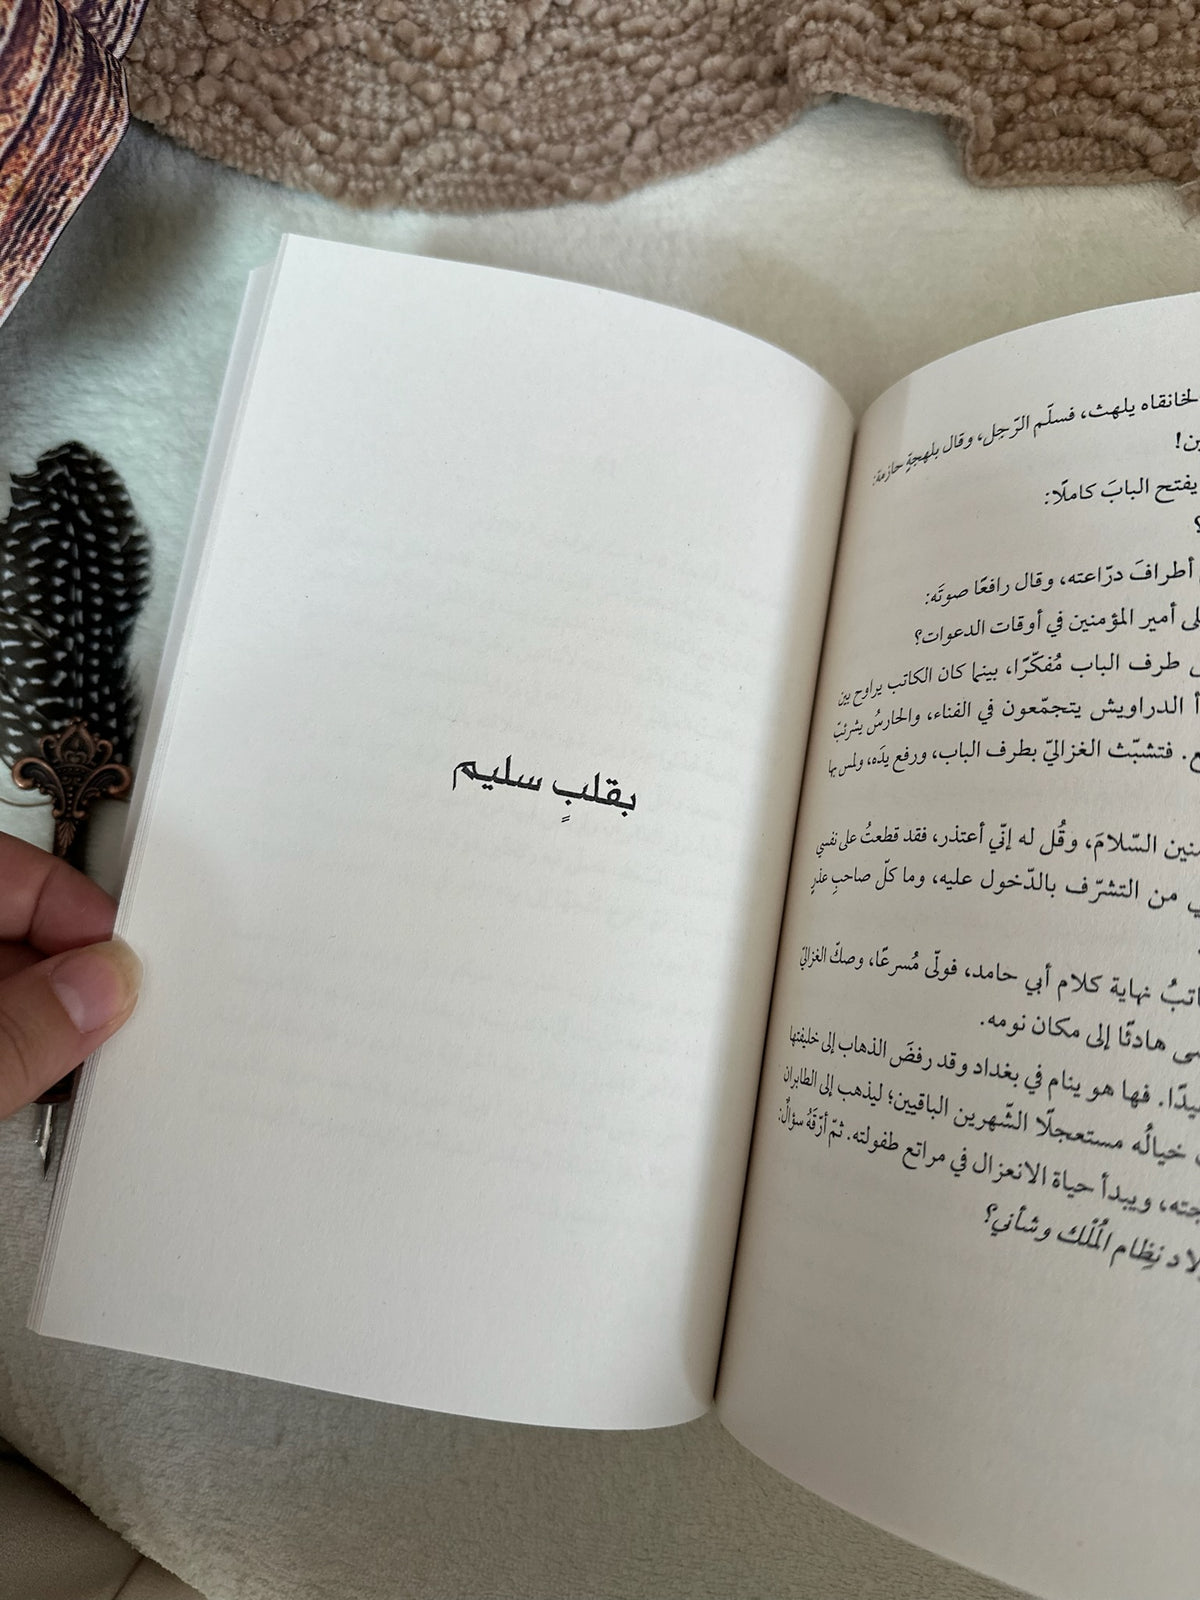 الخانقاه يلهث، فسلّم الرّجل، وقال بلهجةٍ حازمة:
ين!
يفتح البابَ كاملًا:
؟
أطرافَ درّاعته، وقال رافعًا صوتَه:
لى أمير المؤمنين في أوقات الدعوات؟
طرف الباب مُفكّرًا، بينما كان الكاتب يراوح بين
أ الدراويش يتجمّعون في الفناء، والحارسُ يشرئبّ
ع. فتشبّث الغزاليّ بطرف الباب، ورفع يدَه، ولمس بها
منين السّلامَ، وقُل له إنّي أعتذر، فقد قطعتُ على نفسي
ي من التشرّف بالدّخول عليه، وما كلّ صاحبِ عذرٍ
اتبُ نهاية كلام أبي حامد، فولّى مُسرعًا، وصكّ الغزاليّ
سى هادئًا إلى مكان نومه.
يدًا. فها هو ينام في بغداد وقد رفضَ الذهاب إلى خليفتها
خيالُه مستعجلًا الشّهرين الباقيين؛ ليذهب إلى الطابران
جته، ويبدأ حياة الانعزال في مراتع طفولته. ثمّ أرّقَهُ سؤالٌ:
لاد نِظام المُلْك وشأني؟
بقلبٍ سليم